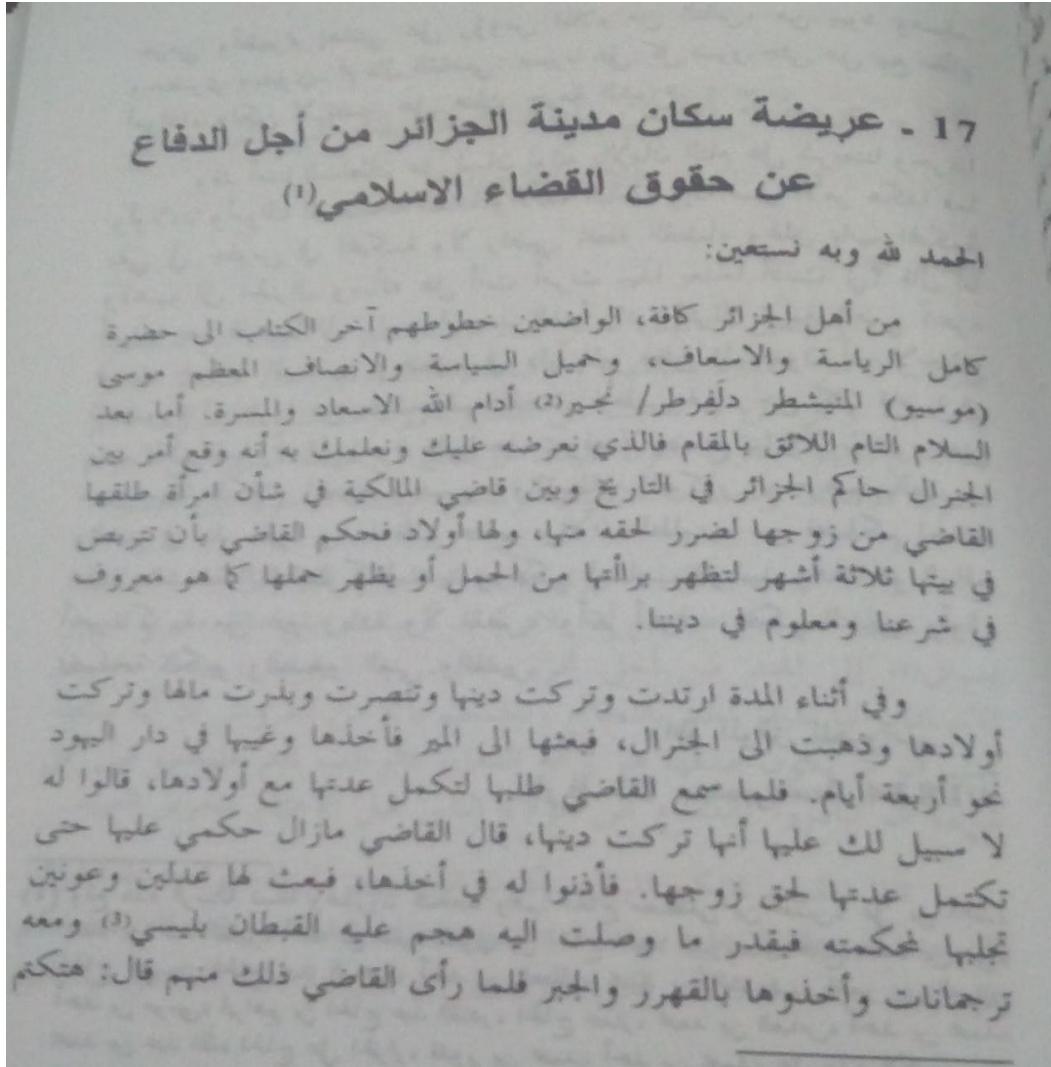 17 ـ عريضة سكان مدينة الجزائر من أجل الدفاع
عن حقوق القضاء الاسلامي(1)
الحمد لله وبه نستعين:
من أهل الجزائر كافة، الواضعين خطوطهم آخر الكتاب الى حضرة
كامل الرياسة والاسعاف، وجميل السياسة والانصاف المعظم موسى
(موسيو) المنيشطر دلَفِرطر/ نجير(2) أدام الله الاسعاد والمسرة. أما بعد
السلام التام اللائق بالمقام فالذي نعرضه عليك ونعلمك به أنه وقع أمر بين
الجنرال حاكم الجزائر في التاريخ وبين قاضي المالكية في شأن امرأة طلقها
القاضي من زوجها لضرر لحقه منها، ولها أولاد فحكم القاضي بأن تتربص
في بيتها ثلاثة أشهر لتظهر براأتها من الحمل أو يظهر حملها كما هو معروف
في شرعنا ومعلوم في ديننا.
وفي أثناء المدة ارتدت وتركت دينها وتنصرت وبذرت مالها وتركت
أولادها وذهبت الى الجنرال، فبعثها الى المير فأخذها وغيبها في دار اليهود
نحو أربعة أيام. فلما سمع القاضي طلبها لتكمل عدتها مع أولادها، قالوا له
لا سبيل لك عليها أنها تركت دينها، قال القاضي مازال حكمي عليها حتى
تكتمل عدتها لحق زوجها. فأذنوا له في أخذها، فبعث لها عدلين وعونين
تجلبها لمحكمته فبقدر ما وصلت اليه هجم عليه القبطان بليسي(3) ومعه
ترجمانات وأخذوها بالقهرر والجبر فلما رأى القاضي ذلك منهم قال: هتكتم